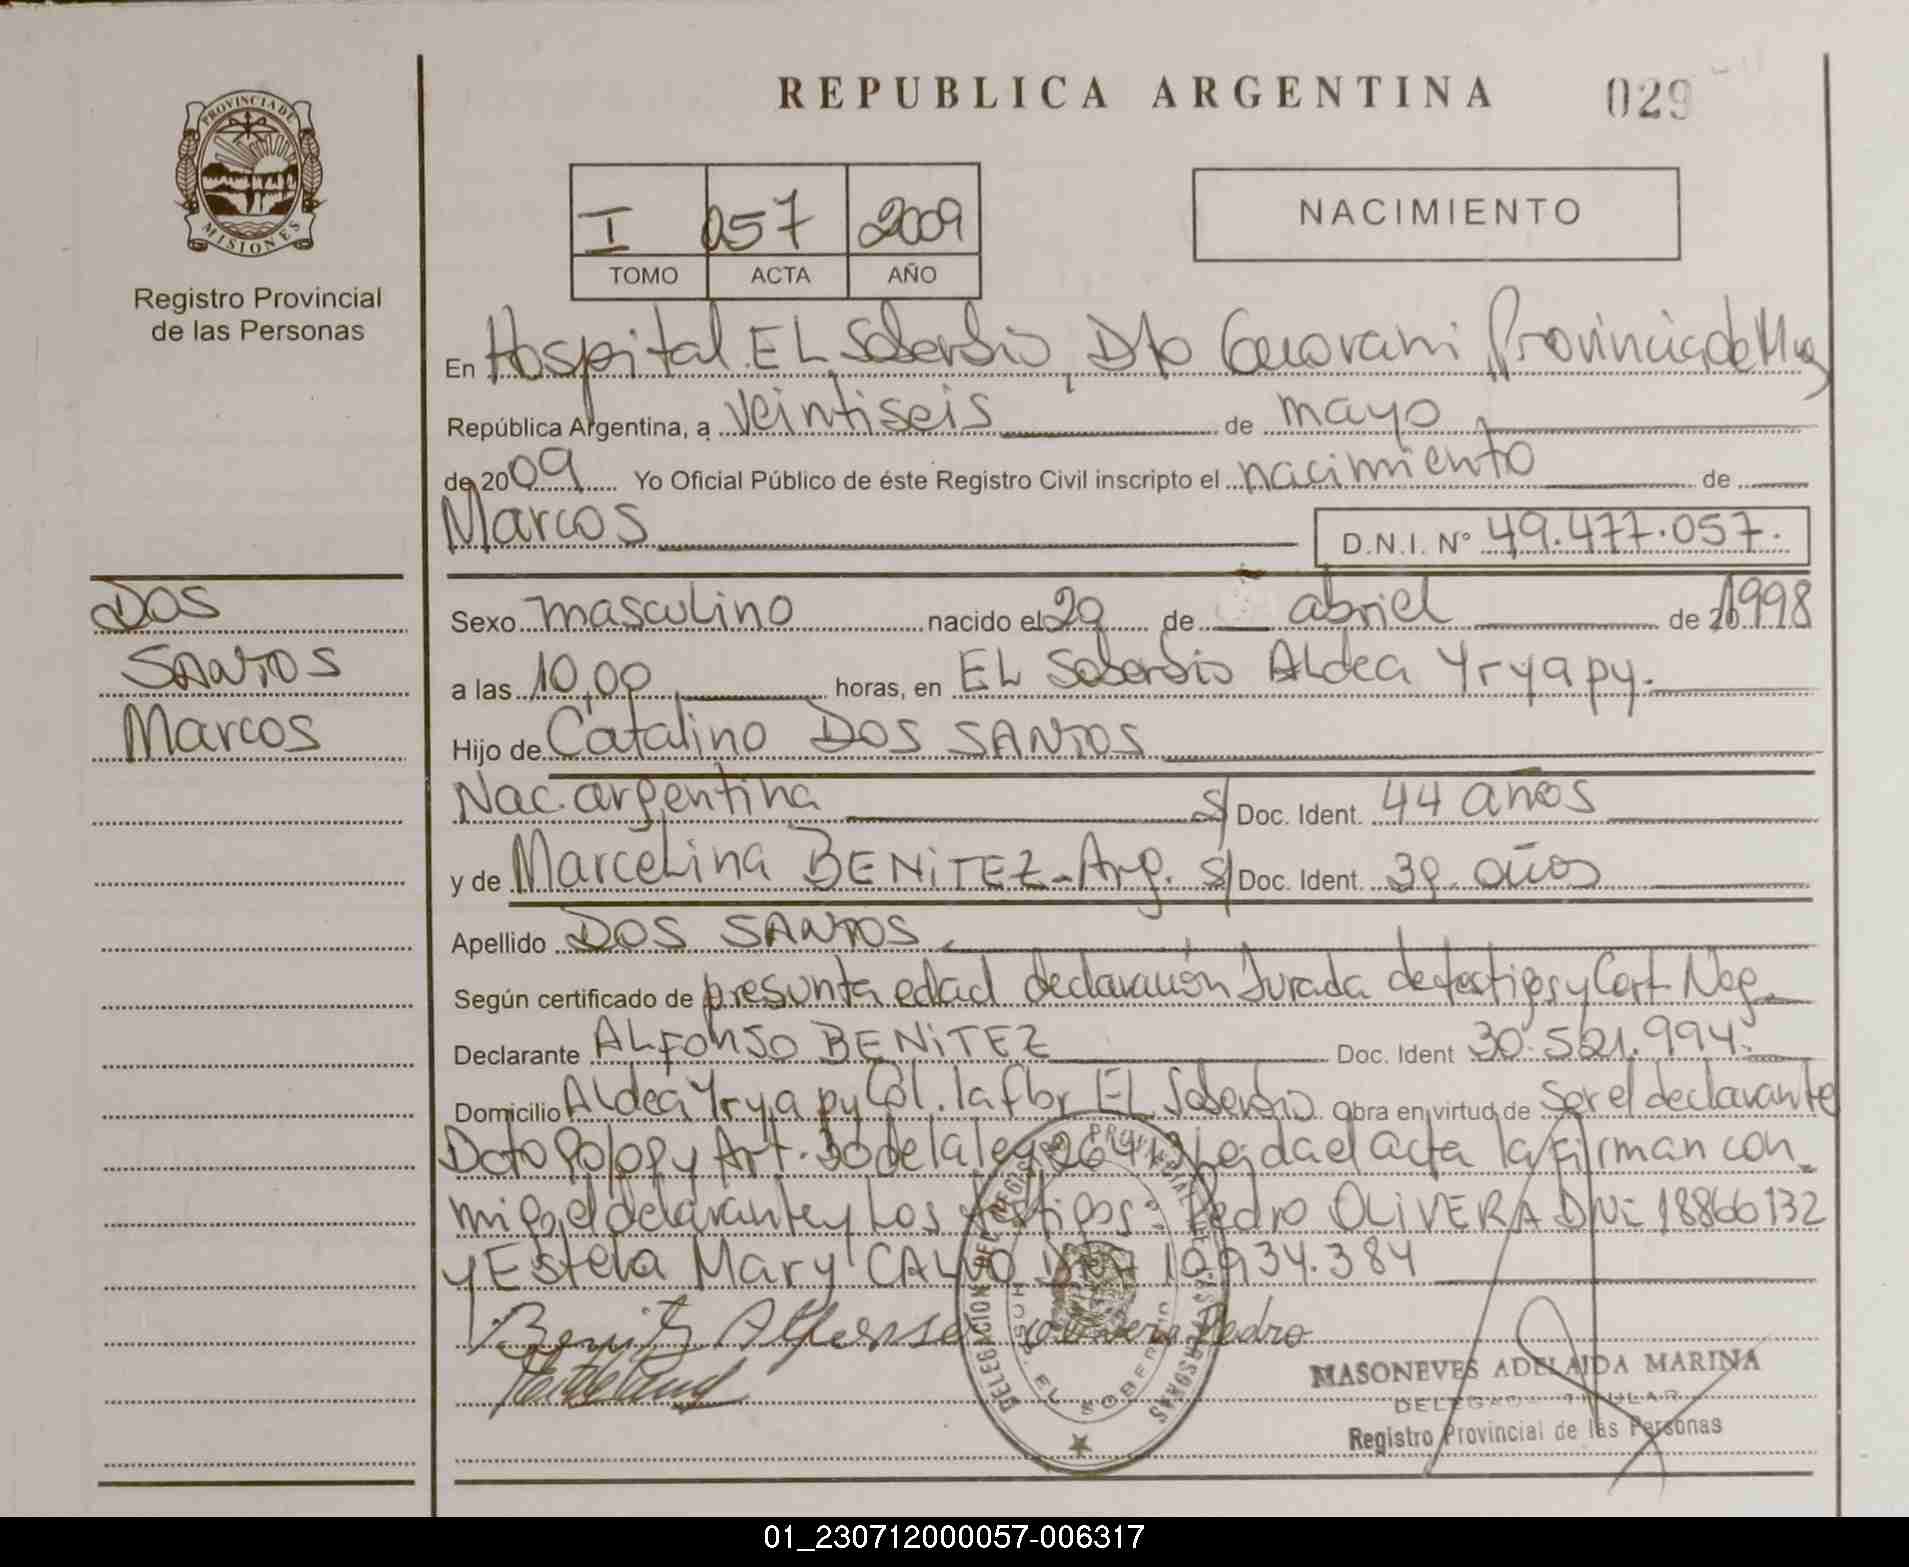 REPUBLICA ARGENTINA 029
PROVINCIA DE
MISIONES
Registro Provincial
de las Personas
I 057 2009
TOMO ACTA AÑO
NACIMIENTO
En Hospital EL Soberbio, Dto Guarani Provincia de Mnes
República Argentina, a veintiseis de mayo
de 2009 Yo Oficial Público de éste Registro Civil inscripto el nacimiento de
Marcos D.N.I. N° 49.477.057.
DOS
SANTOS
Marcos
Sexo masculino nacido el 29 de abril de 1998
a las 10,00 horas, en EL Soberbio Aldea Yryapy.
Hijo de Catalino DOS SANTOS
Nac. argentina S/ Doc. Ident. 44 años
y de Marcelina BENiTEZ - Arg. S/ Doc. Ident. 39 años
Apellido DOS SANTOS
Según certificado de presunta edad declaración Jurada de testigos y Cert. Neg.
Declarante ALFONSO BENiTEZ Doc. Ident 30.521.994.
Domicilio Aldea Yryapy Col. la flor EL Soberbio Obra en virtud de ser el declarante
Dcto y Art. 30 de la ley Leida el acta la firman con
migo el declarante y Los testigos: Pedro OLiVERA DNi 18866132
y Estela Mary CALVO DNI 10934.384
Benitez Alfonso Olivera Pedro
DELEGACION DEL REGISTRO PROVINCIAL DE LAS PERSONAS
EL SOBERBIO
MASONEVES ADELAIDA MARINA
DELEGADA TITULAR
Registro Provincial de las Personas
01_230712000057-006317